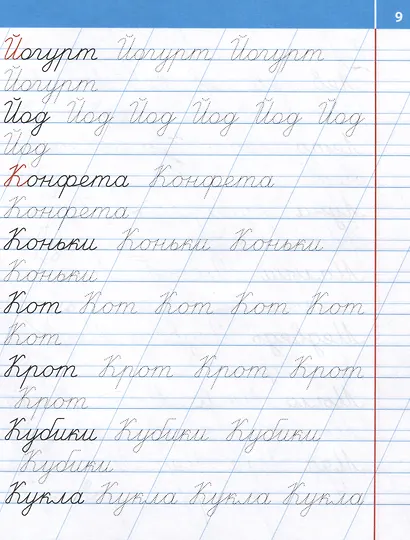 9
Йогурт Йогурт Йогурт
Йогурт
Йод Йод Йод Йод Йод Йод
Йод
Конфета Конфета
Конфета
Коньки Коньки Коньки
Коньки
Кот Кот Кот Кот Кот
Кот
Крот Крот Крот Крот
Крот
Кубики Кубики Кубики
Кубики
Кукла Кукла Кукла Кукла